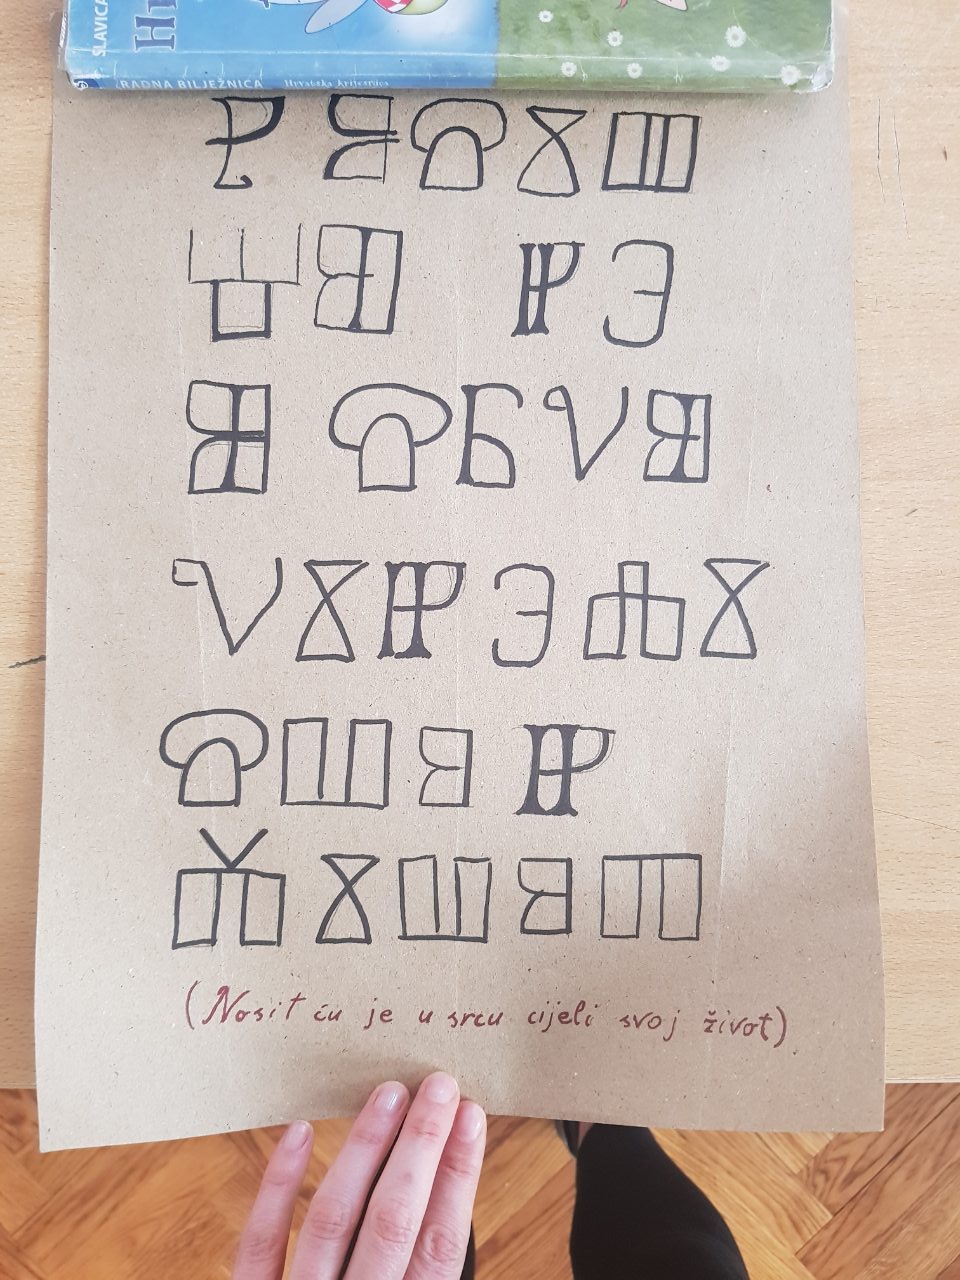 SLAVICA
RADNA BILJEŽNICA Hrvatska krijesnica
ⰐⰑⰔⰋⰕ
ⰛⰖ ⰌⰅ
Ⱆ ⰔⰓⰜⰖ
ⰜⰋⰌⰅⰎⰋ
ⰔⰂⰑⰌ
ⰆⰋⰂⰑⰕ
(Nosit ću je u srcu cijeli svoj život)